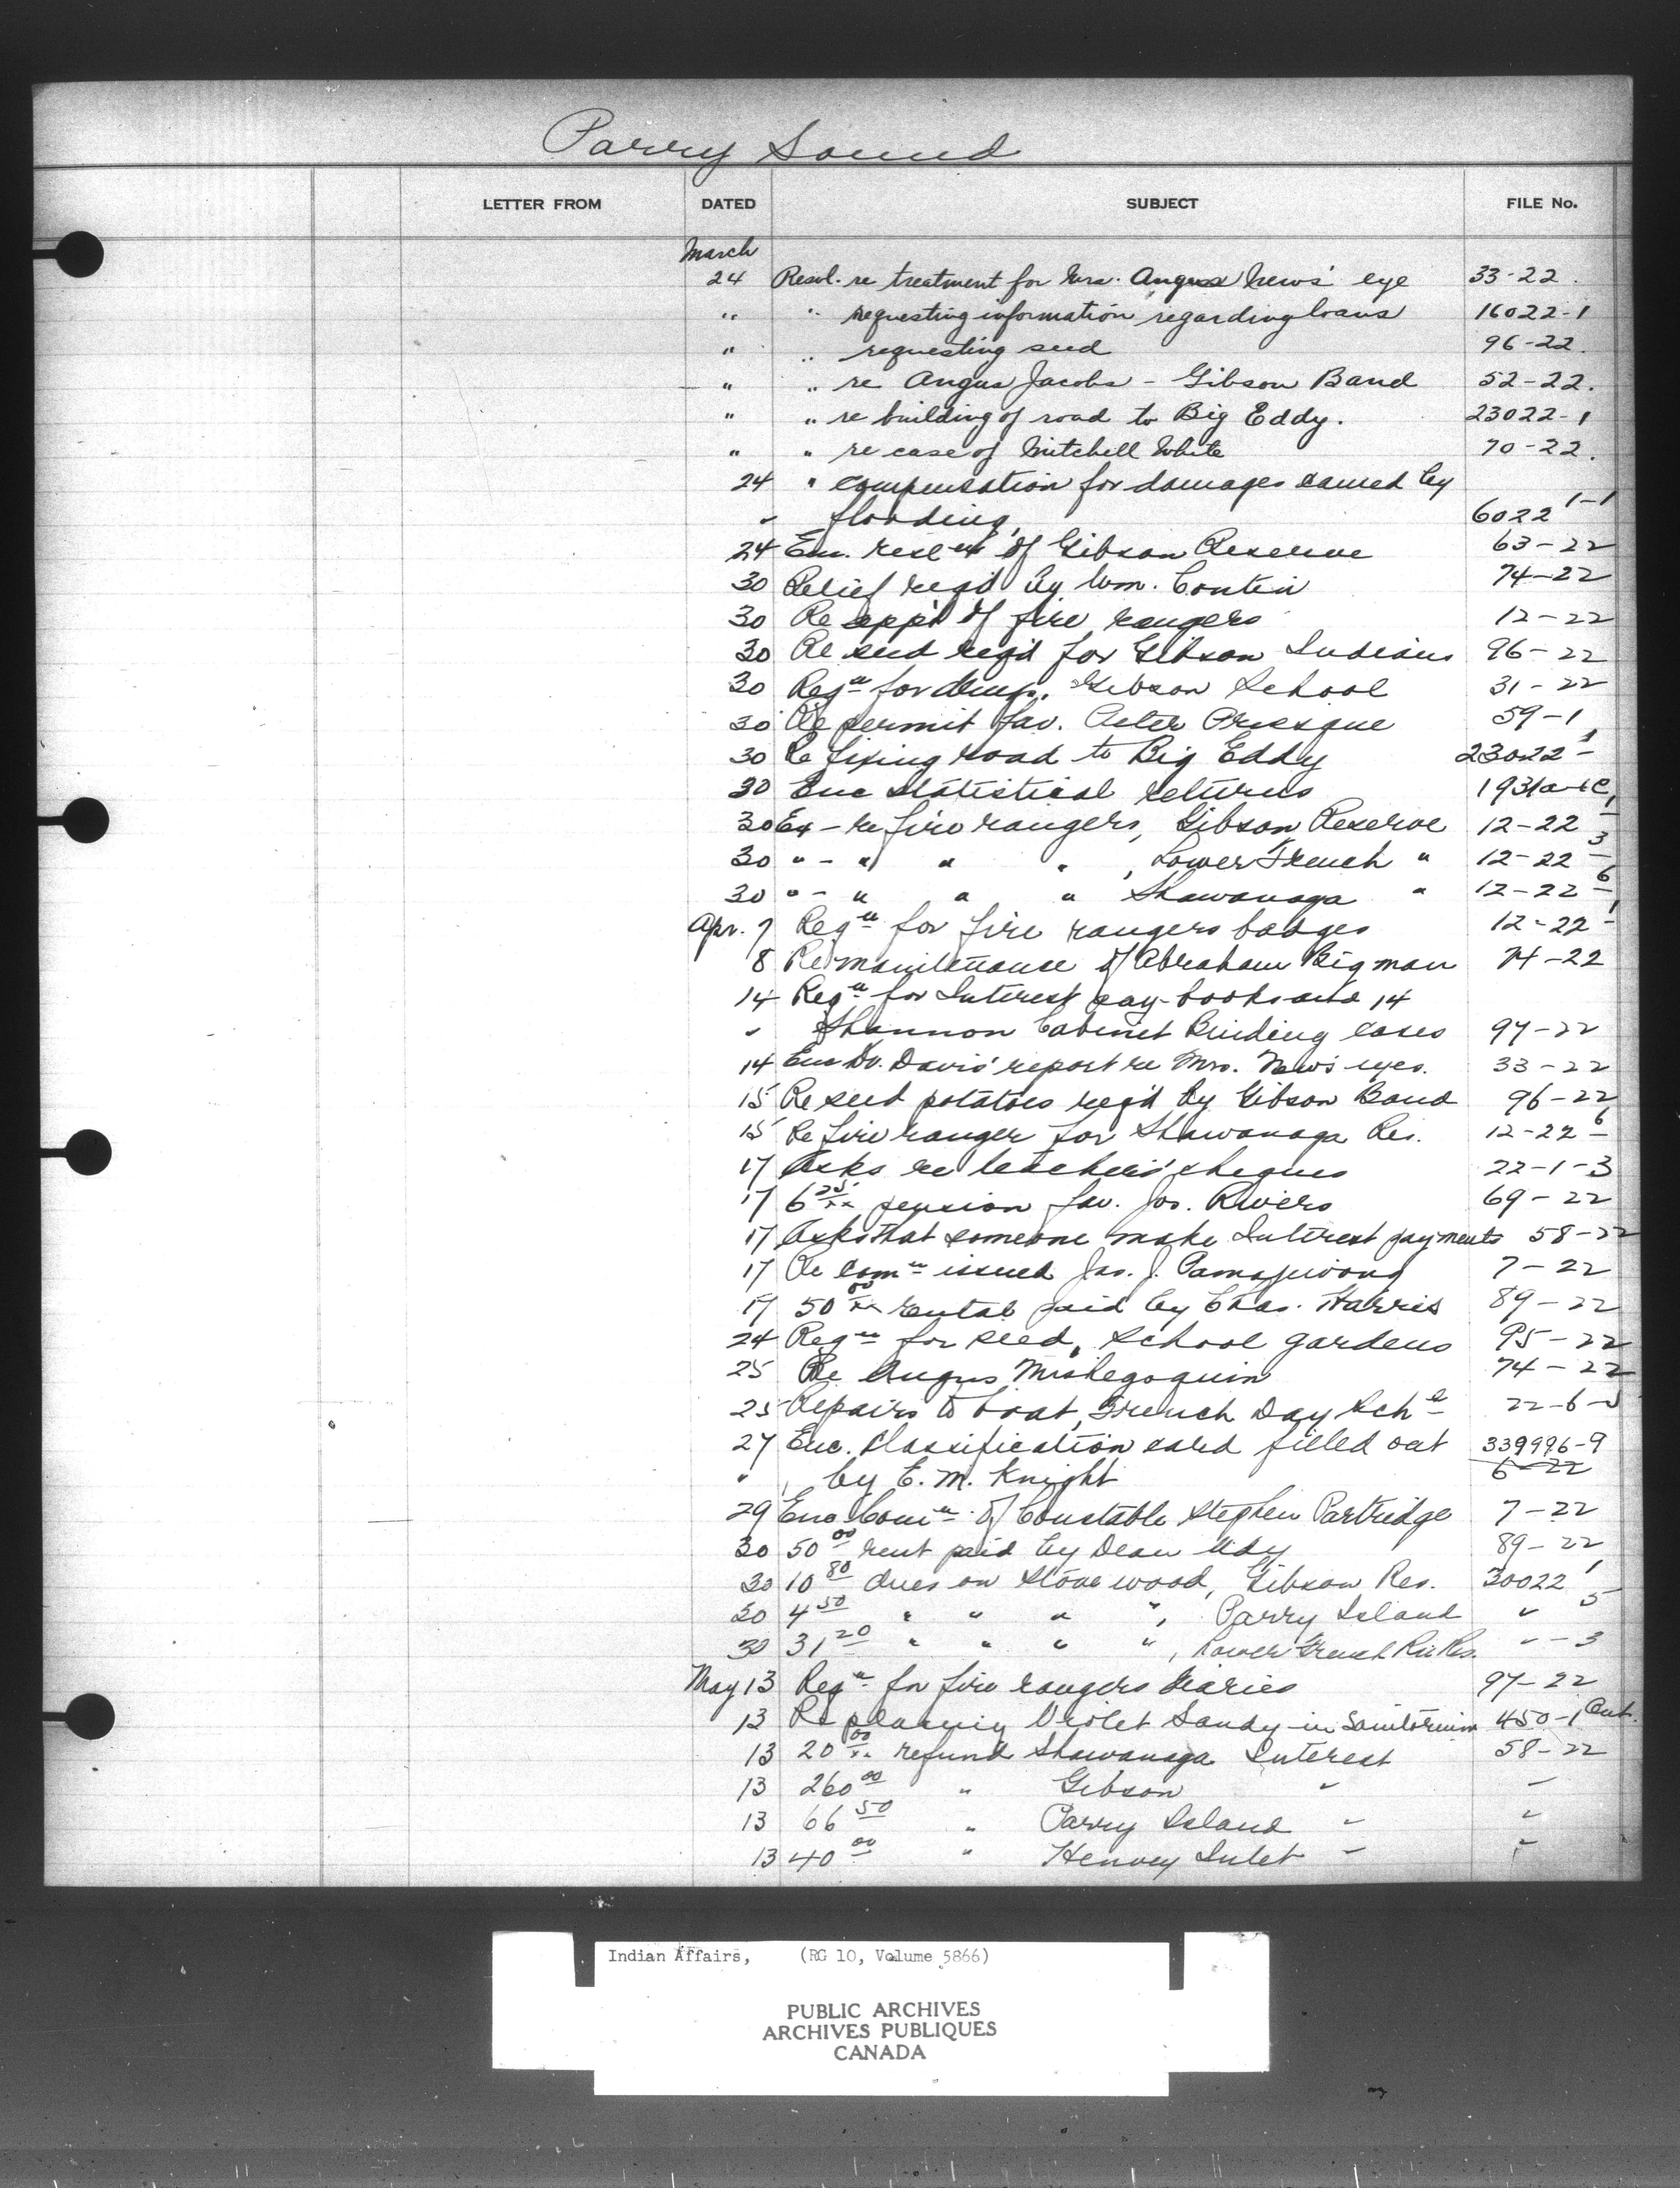 Parry Sound
LETTER FROM DATED SUBJECT FILE No.
March
24 Resol. re treatment for Mrs. Angus News' eye 33-22.
" " requesting information regarding loans 16022-1
" " requesting seed 96-22.
" " re Angus Jacobs - Gibson Band 52-22.
" " re building of road to Big Eddy. 23022-1
" " re case of Mitchell White 70-22.
24 " compensation for damages caused by
" flooding 6022 1-1
24 Enc. of Gibson Reserve 63-22
30 Relief reqd by Wm. Contin 74-22
30 Re appt of fire rangers 12-22
30 Re seed reqd for Gibson Indians 96-22
30 Reqn for Gibson School 31-22
30 Re permit fav. Peter Presque 59-1
30 Re fixing road to Big Eddy 23022-1
30 Enc statistical returns 1931
30 Ex - re fire rangers, Gibson Reserve 12-22-1
30 " - " " " , Lower French " 12-22-3
30 " - " " " Shawanaga " 12-22-6
Apr. 7 Reqn for fire rangers badges 12-22-1
8 Re maintenance of Abraham Bigman 74-22
14 Reqn for Interest pay-books and 14
" Shannon Cabinet Binding cases 97-22
14 Enc Dr. Davis' report re Mrs. News' eyes. 33-22
15 Re seed potatoes reqd by Gibson Band 96-22
15 Re fire ranger for Shawanaga Res. 12-22-6
17 Asks re teachers' cheques 22-1-3
17 6 25/xx pension fav. Jos. Rivers 69-22
17 Asks that someone make Interest payments 58-22
17 Re comn issued Jas. J. Pamajewong 7-22
17 50 00/xx rental paid by Chas. Harris 89-22
24 Reqn for seed, School gardens 95-22
25 Re Angus Mishegoquin 74-22
25 Repairs to boat, French Day Schl 22-6-
27 Enc. Classification card filled out 339996-9
" by E. M. Knight 6-22
29 Enc Comn of Constable Stephen Partridge 7-22
30 50 00 rent paid by Dean Udy 89-22
30 10 80 dues on stove wood, Gibson Res. 30022 1
30 4 50 " " " ", Parry Island " 5
30 31 20 " " " ", Lower French Riv Res. " - 3
May 13 Reqn for fire rangers diaries 97-22
13 Re placing Violet Sandy in Sanitorium 450-1 Ont.
13 20 00/xx refund Shawanaga Interest 58-22
13 260 00 " Gibson " "
13 66 50 " Parry Island " "
13 40 00 " Henvey Inlet " "
Indian Affairs, (RG 10, Volume 5866)
PUBLIC ARCHIVES
ARCHIVES PUBLIQUES
CANADA